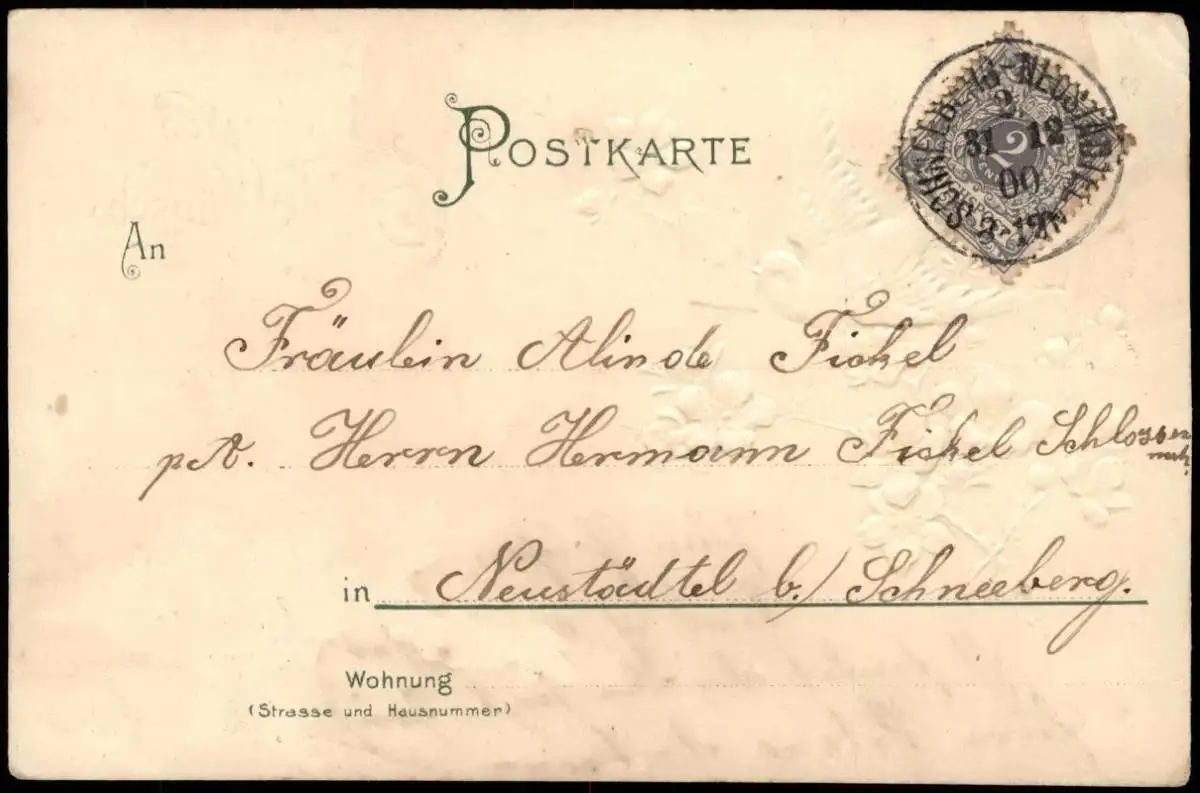 POSTKARTE
SCHNEEBERG-NEUSTÄDTEL
2
31 12
00
2
An
Fräulein Alinde Fickel
p.A. Herrn Hermann Fickel Schlossermstr.
in Neustädtel b./ Schneeberg.
Wohnung
(Strasse und Hausnummer)